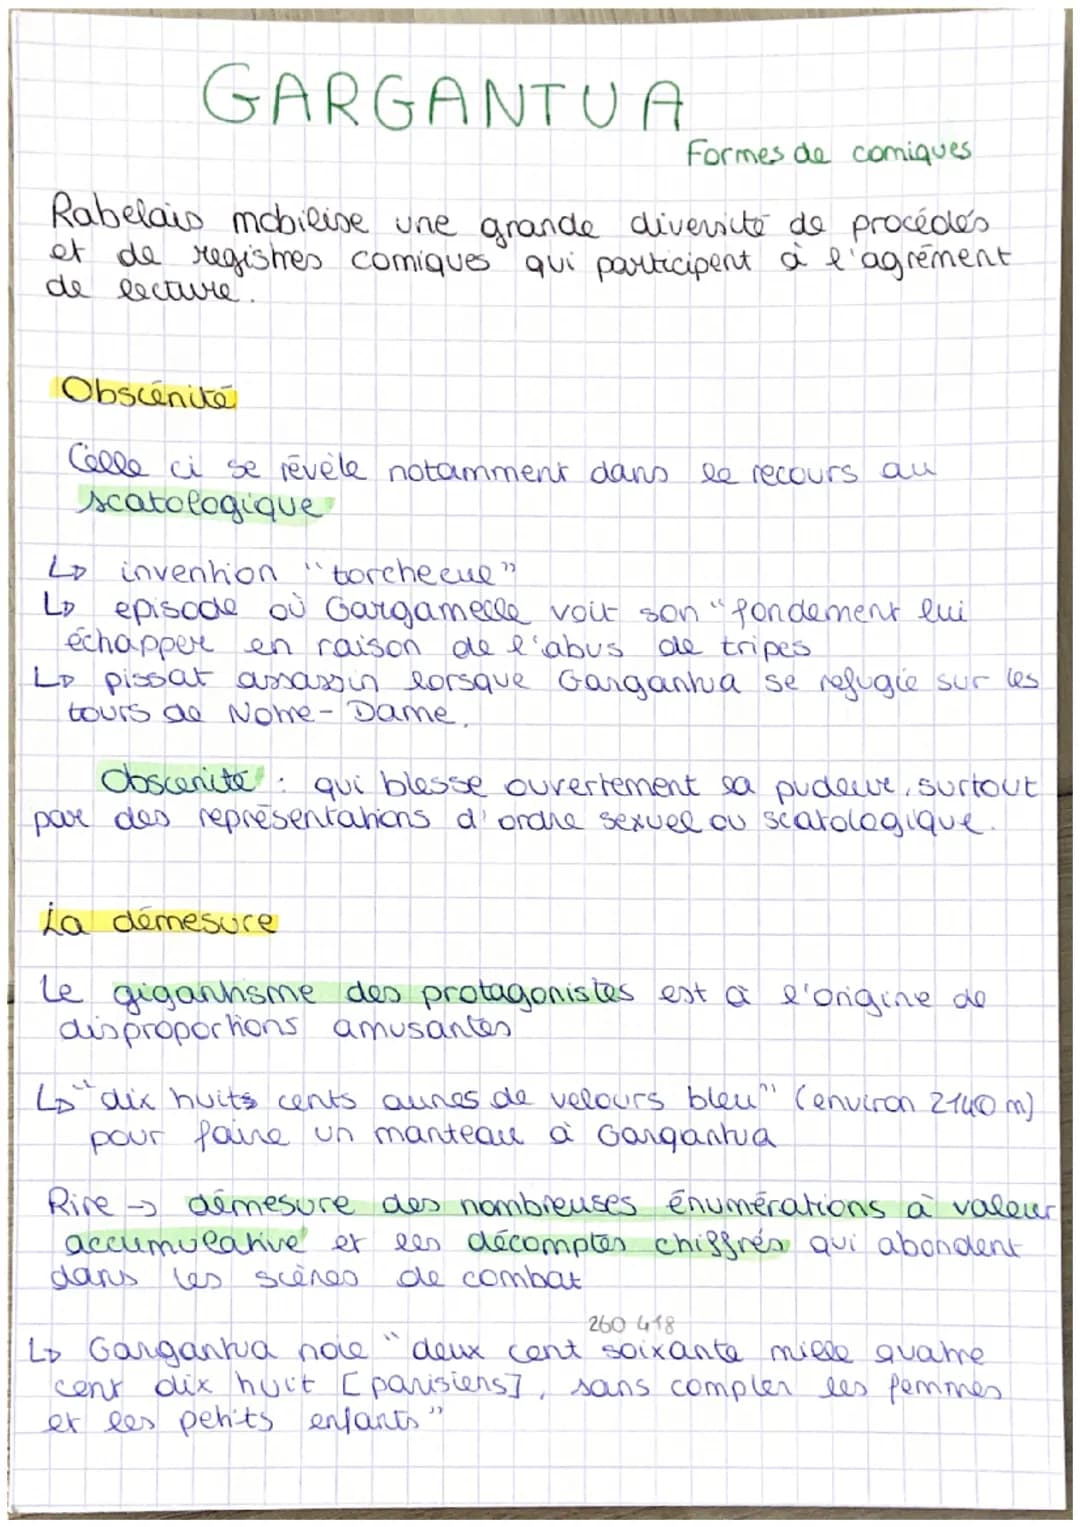 GARGANTUA
Formes de comiques
Rabelais mobilise une grande diversité de procédés
et de registres comiques qui participent à l'agrément
de lecture.
Obscénité
Celle ci se révèle notamment dans le recours au
scatologique
↳ invention "torchecue"
↳ episode où Gargamelle voit son "fondement lui
échapper en raison de l'abus de tripes
↳ pissat assassin lorsque Gargantua se refugie sur les
tours de Notre-Dame.
Obscenité : qui blesse ouvertement la pudeur, surtout
par des représentations d'ordre sexuel ou scatologique.
La démesure
Le gigantisme des protagonistes est à l'origine de
disproportions amusantes
↳ "dix huits cents aunes de velours bleu" (environ 2140 m)
pour faire un manteau à Gargantua
Rire → démesure des nombreuses énumérations à valeur
accumulative et les décomptes chiffrés qui abondent
dans les scènes de combat
260 418
↳ Gargantua noie "deux cent soixante mille quatre
cent dix huit [parisiens], sans compter les femmes
et les petits enfants"